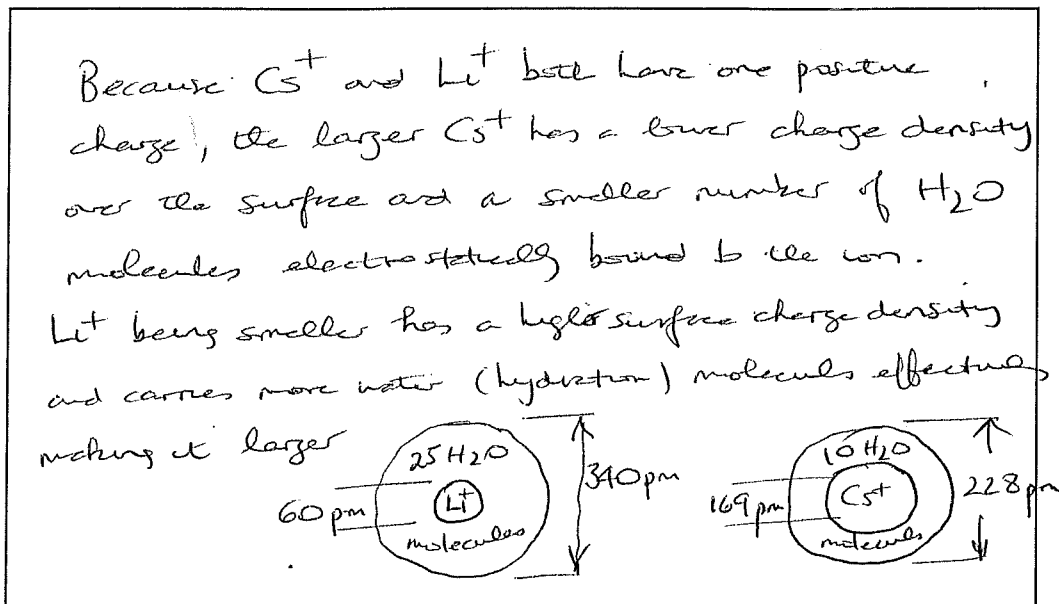 Because Cs⁺ and Li⁺ both have one positive
charge, the larger Cs⁺ has a lower charge density
over the surface and a smaller number of H₂O
molecules electrostatically bound to the ion.
Li⁺ being smaller has a higher surface charge density
and carries more water (hydration) molecules effectively
making it larger
25 H₂O
Li⁺
molecules
60 pm
340 pm
10 H₂O
Cs⁺
molecules
169 pm
228 pm